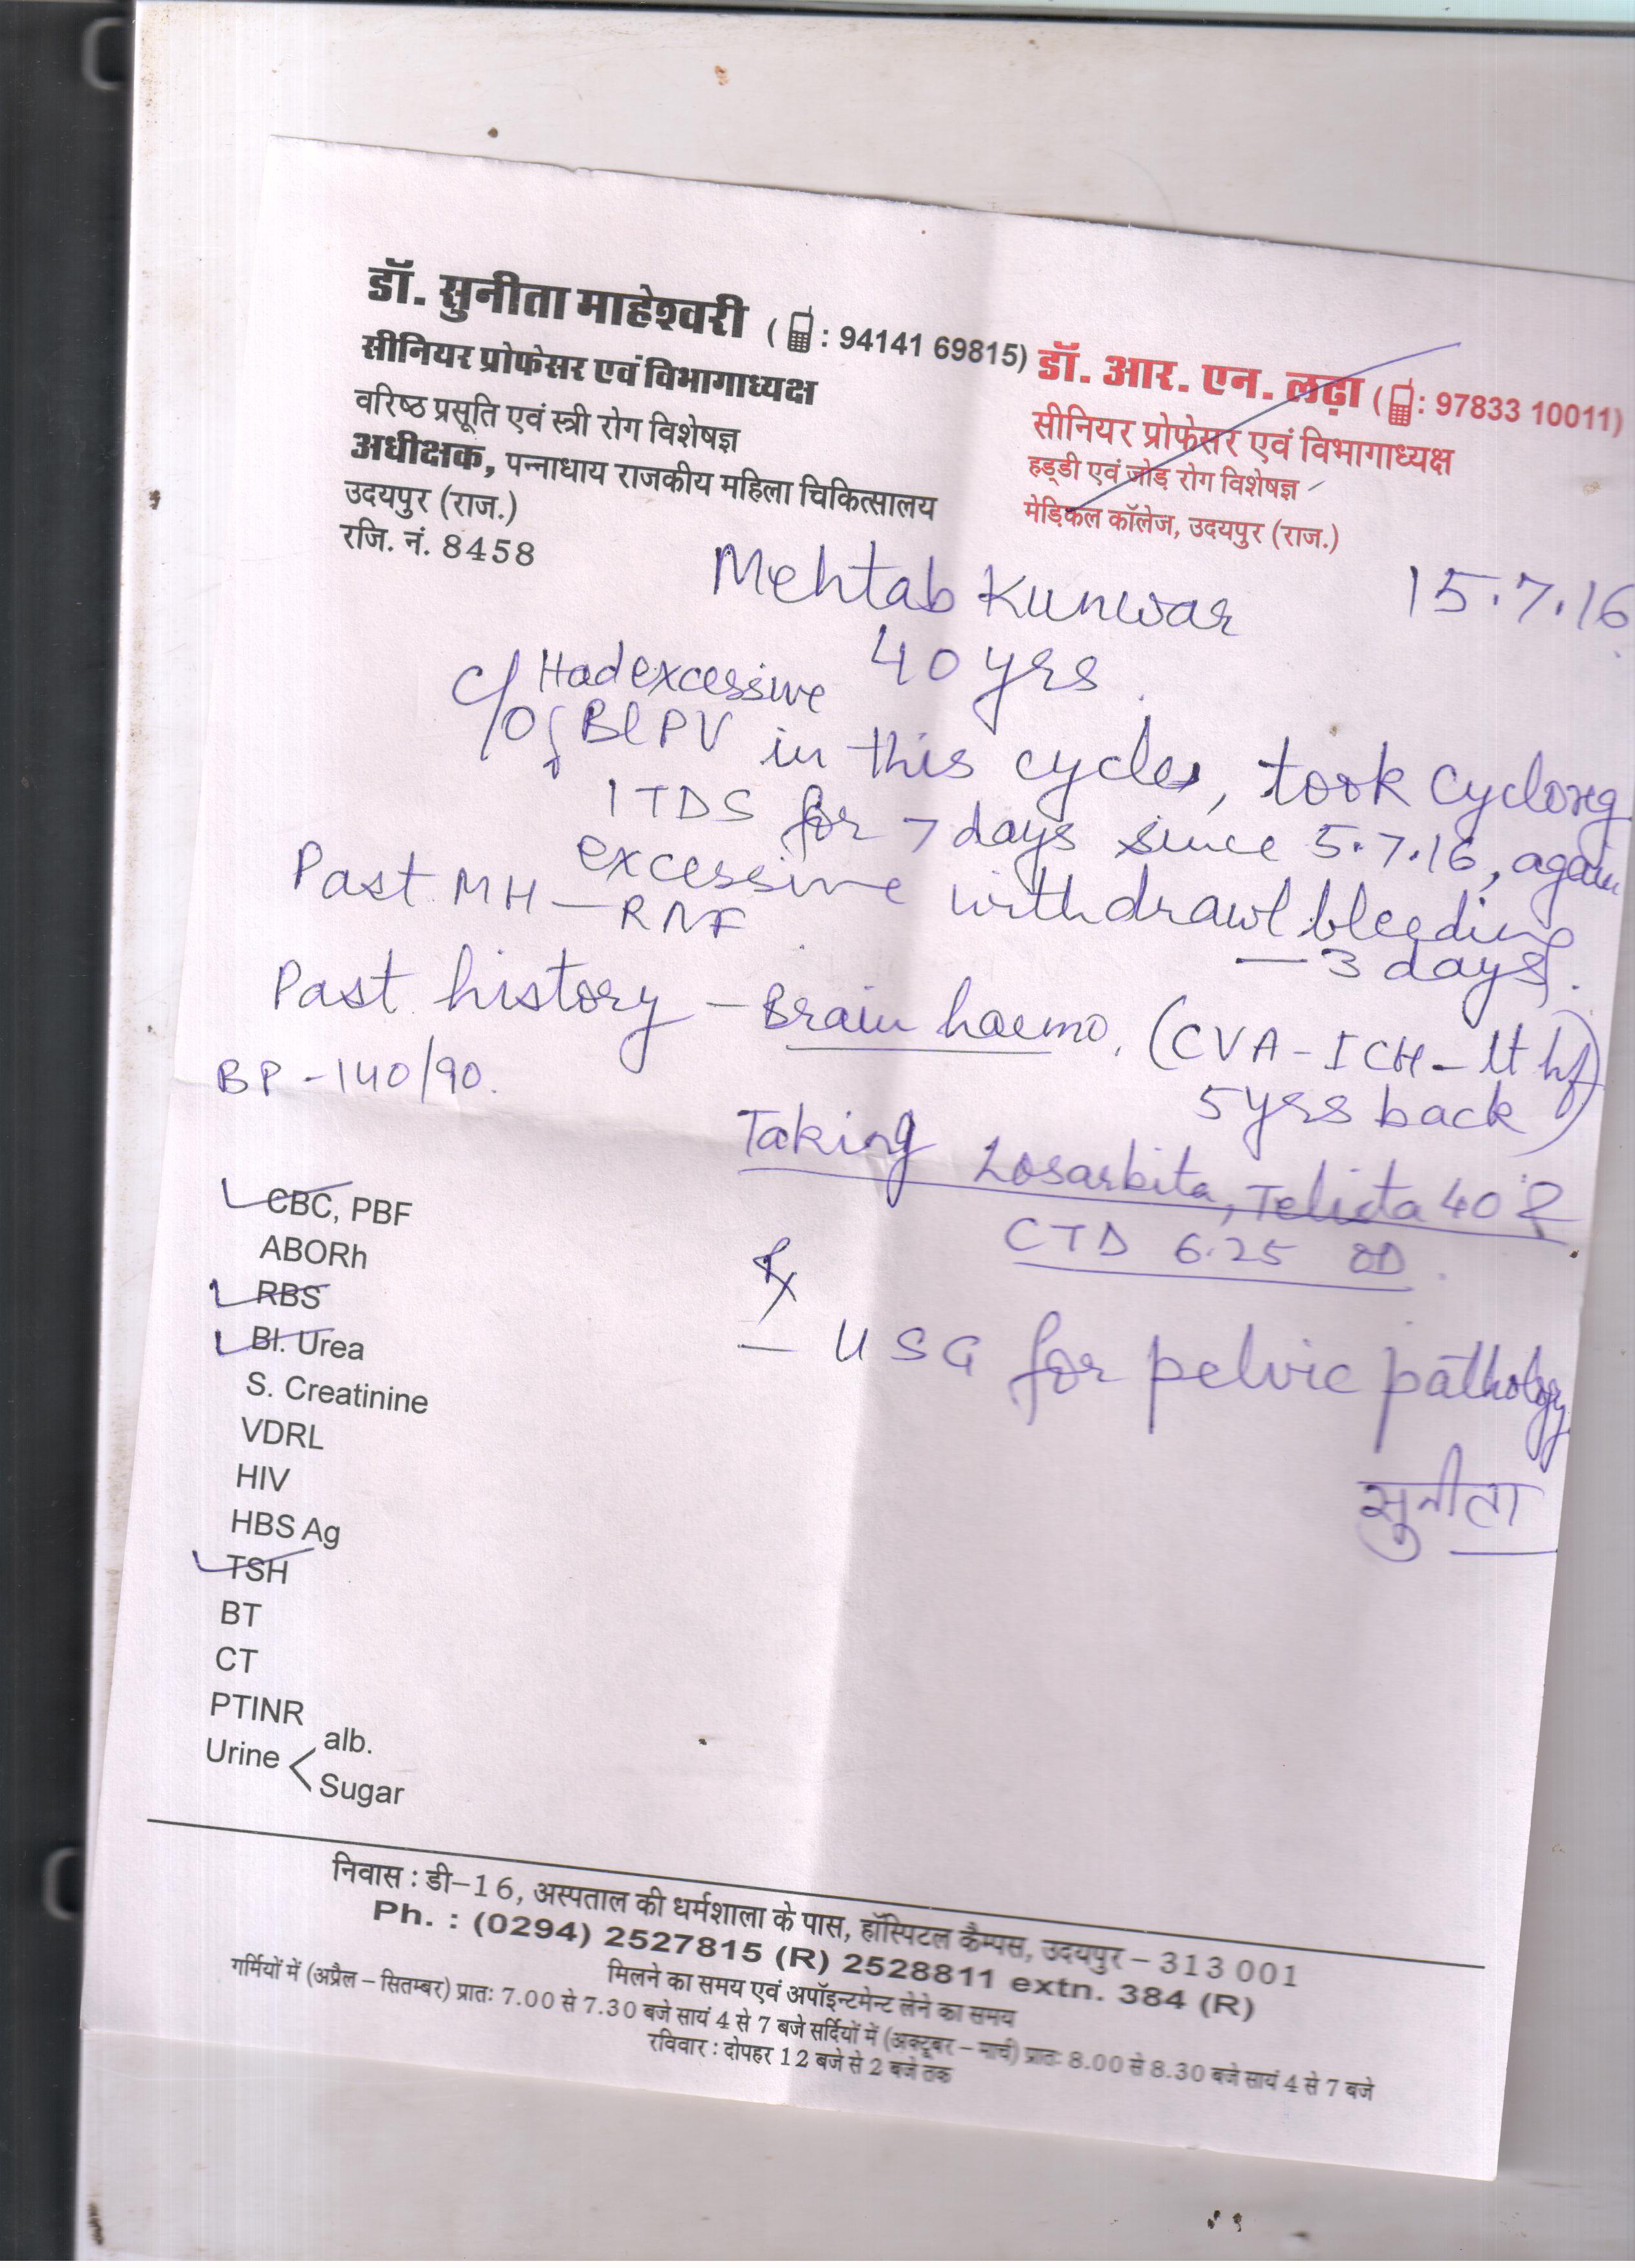 डॉ. सुनीता माहेश्वरी ( : 94141 69815)
सीनियर प्रोफेसर एवं विभागाध्यक्ष
वरिष्ठ प्रसूति एवं स्त्री रोग विशेषज्ञ
अधीक्षक, पन्नाधाय राजकीय महिला चिकित्सालय
उदयपुर (राज.)
रजि. नं. 8458
डॉ. आर. एन. लढ़ा ( : 97833 10011)
सीनियर प्रोफेसर एवं विभागाध्यक्ष
हड्डी एवं जोड़ रोग विशेषज्ञ
मेडिकल कॉलेज, उदयपुर (राज.)
Mehtab Kunwar 15.7.16
40 yrs
c/o Had excessive
Bl PV in this cycle, took cycloreg
1 TDS for 7 days since 5.7.16, again
excessive withdrawl bleeding
— 3 days.
Past MH — RNF
Past history — Brain haemo. (CVA - ICH - lt
5 yrs back)
BP - 140/90.
Taking Losarbita, Telista 40 &
CTD 6.25 OD.
Rx
— USG for pelvic pathology
सुनीता
CBC, PBF
ABORh
RBS
Bl. Urea
S. Creatinine
VDRL
HIV
HBS Ag
TSH
BT
CT
PTINR
Urine < alb.
Sugar
निवास : डी–16, अस्पताल की धर्मशाला के पास, हॉस्पिटल कैम्पस, उदयपुर – 313 001
Ph. : (0294) 2527815 (R) 2528811 extn. 384 (R)
मिलने का समय एवं अपॉइन्टमेन्ट लेने का समय
गर्मियों में (अप्रैल – सितम्बर) प्रातः 7.00 से 7.30 बजे सायं 4 से 7 बजे सर्दियों में (अक्टूबर – मार्च) प्रातः 8.00 से 8.30 बजे सायं 4 से 7 बजे
रविवार : दोपहर 12 बजे से 2 बजे तक